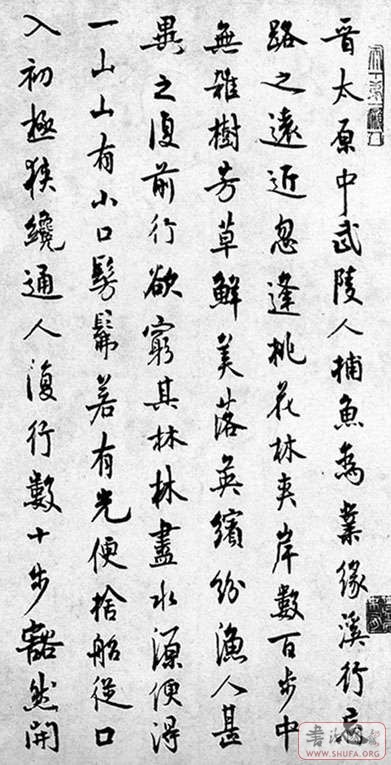 晉太原中武陵人捕魚為業緣溪行忘
路之遠近忽逢桃花林夾岸數百步中
無雜樹芳草鮮美落英繽紛漁人甚
異之復前行欲窮其林林盡水源便得
一山山有小口髣髴若有光便捨船從口
入初極狹纔通人復行數十步豁然開
WWW.SHUFA.ORG